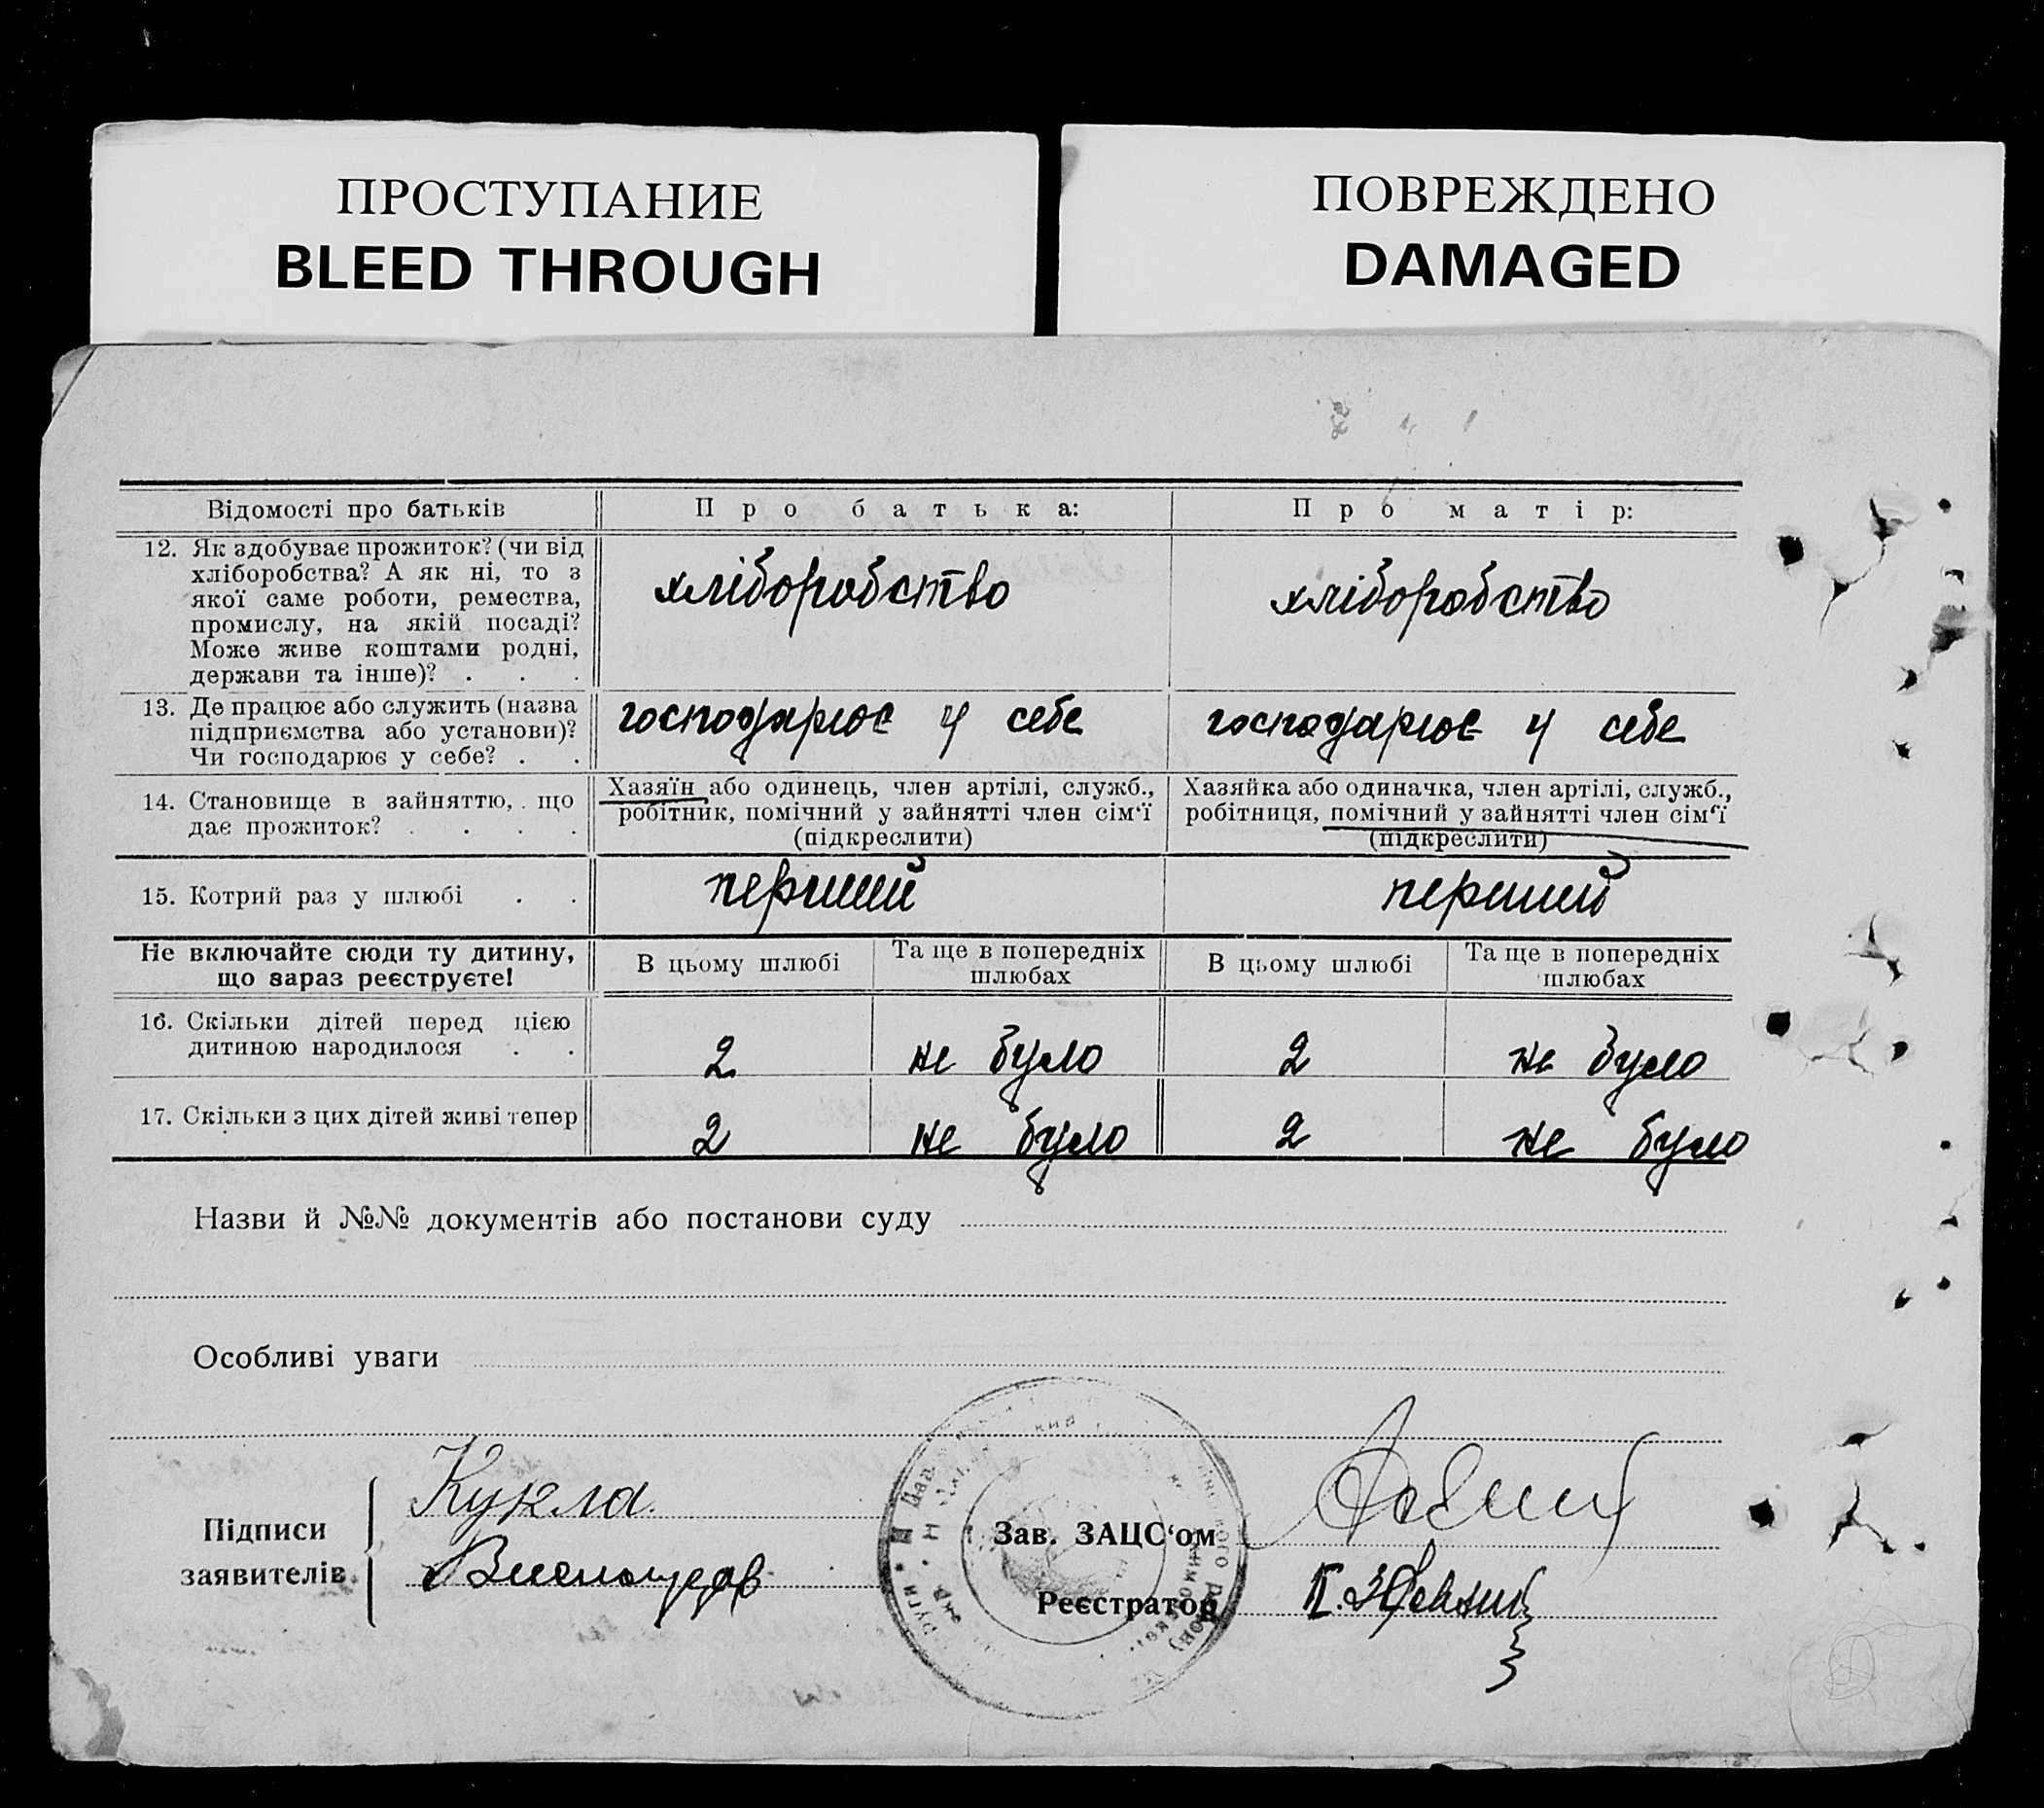 ПРОСТУПАНИЕ
BLEED THROUGH
ПОВРЕЖДЕНО
DAMAGED
Відомості про батьків
Про батька:
Про матір:
12. Як здобуває прожиток? (чи від
хліборобства? А як ні, то з
якої саме роботи, ремества,
промислу, на якій посаді?
Може живе коштами родні,
держави та інше)? . . .
хліборобство
хліборобство
13. Де працює або служить (назва
підприємства або установи)?
Чи господарює у себе? . .
господарює у себе
господарює у себе
14. Становище в зайняттю, що
дає прожиток? . . . .
Хазяїн або одинець, член артілі, служб.,
робітник, помічний у зайнятті член сім‘ї
(підкреслити)
Хазяйка або одиначка, член артілі, служб.,
робітниця, помічний у зайнятті член сім‘ї
(підкреслити)
15. Котрий раз у шлюбі . .
перший
перший
Не включайте сюди ту дитину,
що зараз реєструєте!
В цьому шлюбі
Та ще в попередніх
шлюбах
В цьому шлюбі
Та ще в попередніх
шлюбах
16. Скільки дітей перед цією
дитиною народилося . .
2
не було
2
не було
17. Скільки з цих дітей живі тепер
2
не було
2
не було
Назви й №№ документів або постанови суду
Особливі уваги
Підписи
заявителів
Кукла
Зав. ЗАЦС‘ом
Реєстратор